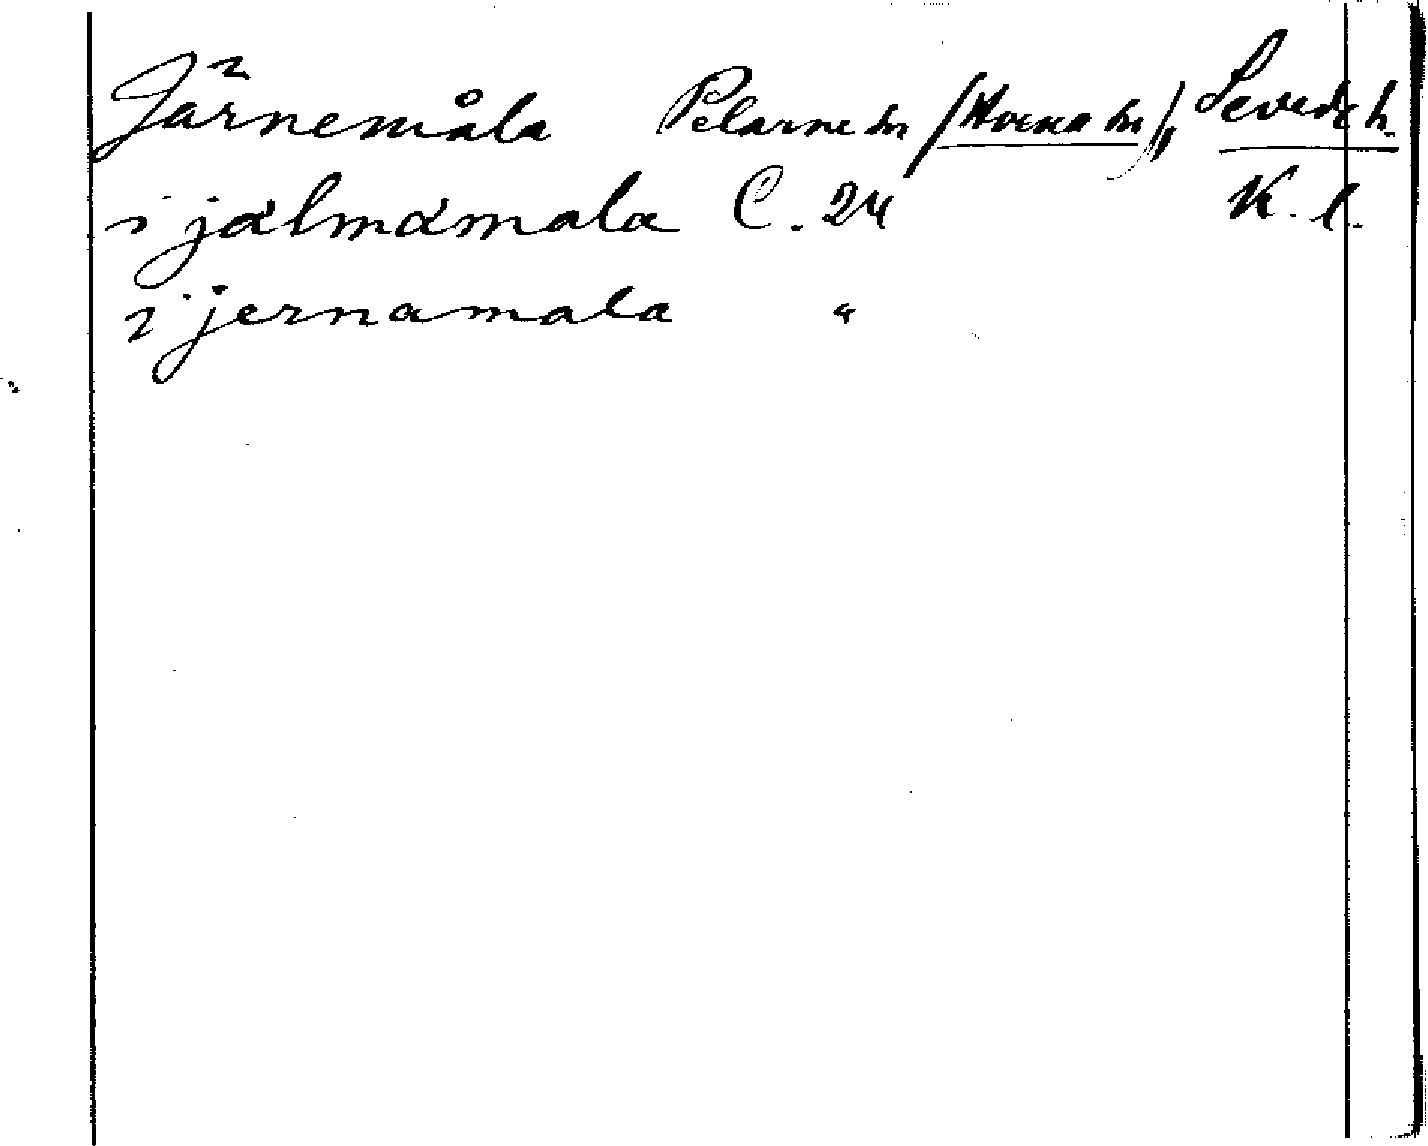 Järnemåla Pelarne sn (Hvena sn), Sevede h.
i jælmæmala C. 24 K. l.
i jernamala "